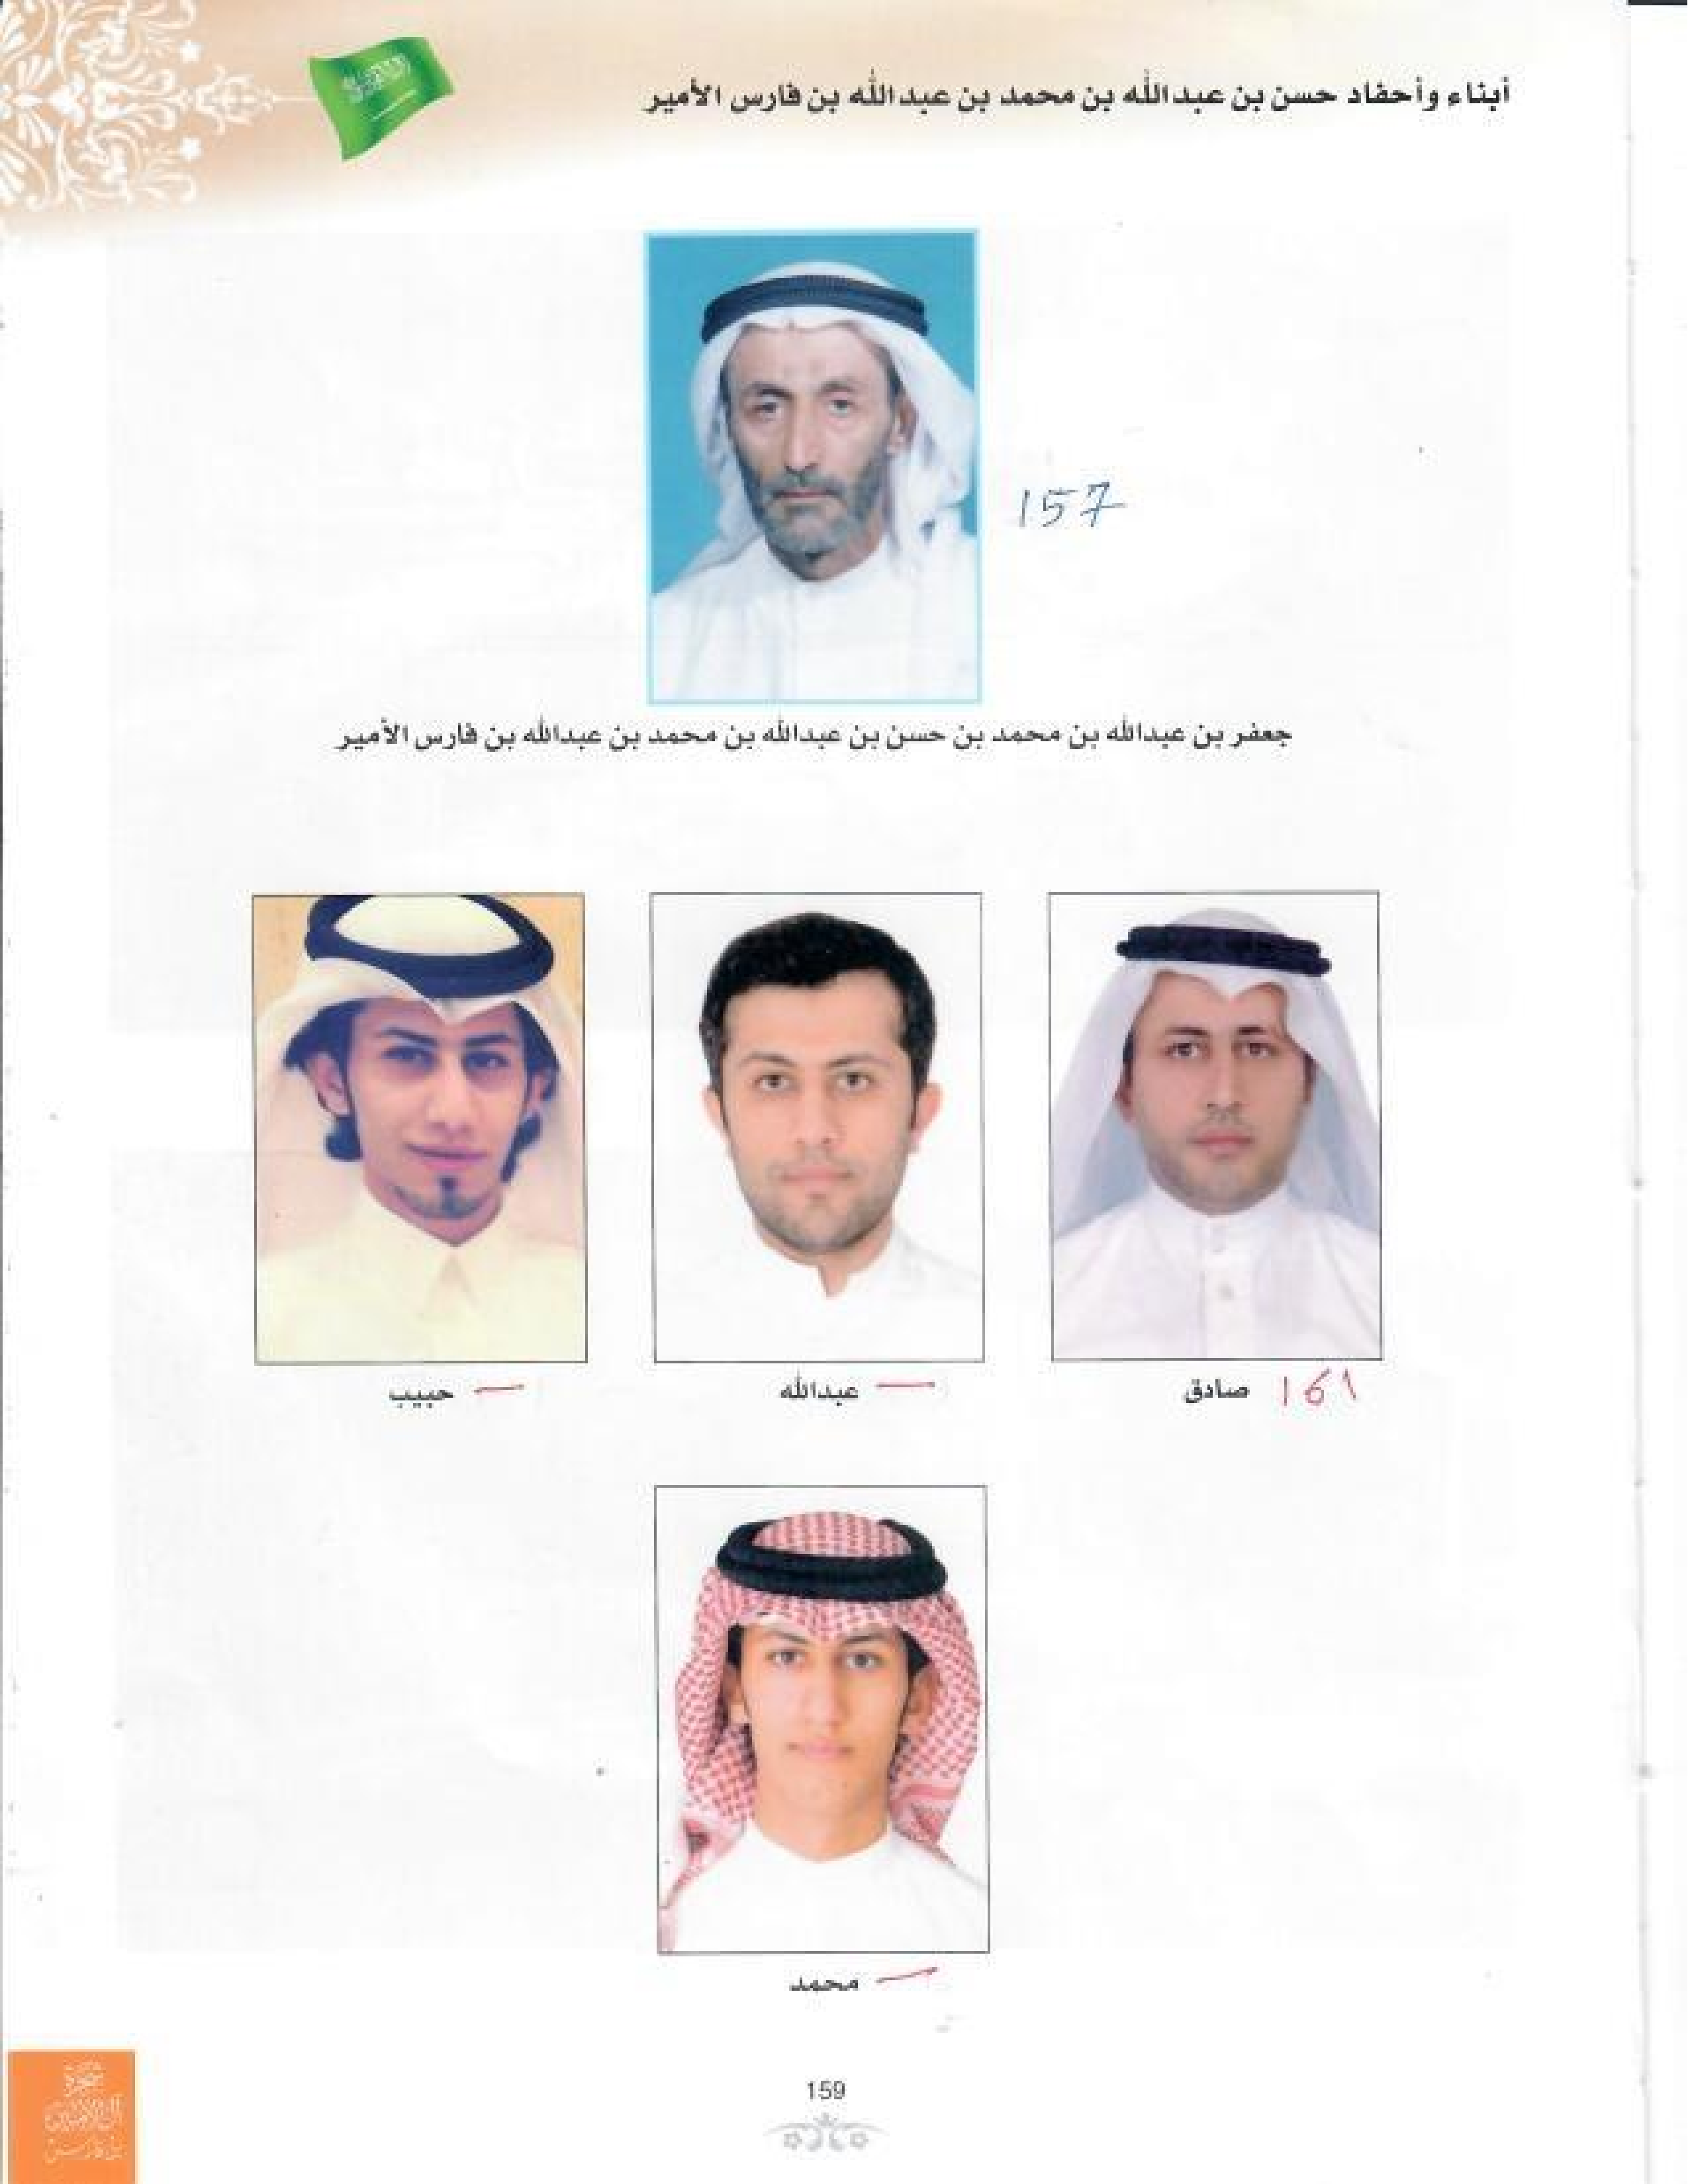 أبناء وأحفاد حسن بن عبدالله بن محمد بن عبدالله بن فارس الأمير
157
جعفر بن عبدالله بن محمد بن حسن بن عبدالله بن محمد بن عبدالله بن فارس الأمير
161 صادق
عبدالله
حبيب
محمد
159
شجرة